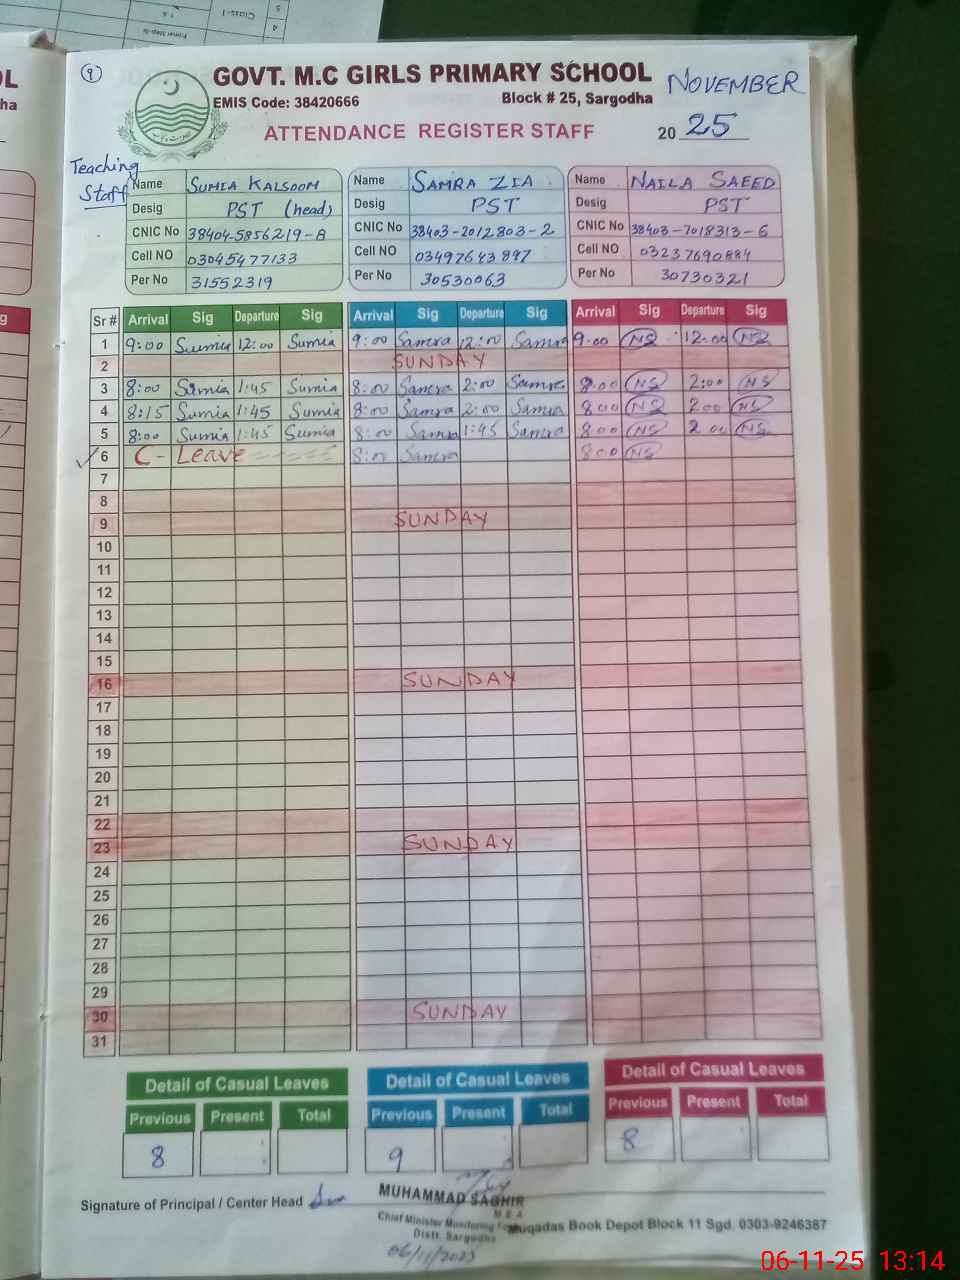 5
4
Class-1
9
L
ha
g
GOVT. M.C GIRLS PRIMARY SCHOOL
NOVEMBER
EMIS Code: 38420666 Block # 25, Sargodha
ATTENDANCE REGISTER STAFF 2025
Teaching
Staff
Name SUMIA KALSOOM Name SAMRA ZIA Name NAILA SAEED
Desig PST (head) Desig PST Desig PST
CNIC No 38404-5856219-8 CNIC No 38403-2012803-2 CNIC No 38403-7018313-6
Cell NO 03045477133 Cell NO 03497643897 Cell NO 03237690884
Per No 31552319 Per No 30530063 Per No 30730321
Sr # Arrival Sig Departure Sig Arrival Sig Departure Sig Arrival Sig Departure Sig
1 9:00 Sumia 12:00 Sumia 9:00 Samra 12:00 Samra 9:00 NS 12:00 NS
2 SUNDAY
3 8:00 Sumia 1:45 Sumia 8:00 Samra 2:00 Samra 8:00 NS 2:00 NS
4 8:15 Sumia 1:45 Sumia 8:00 Samra 2:00 Samra 8:00 NS 2:00 NS
5 8:00 Sumia 1:45 Sumia 8:00 Samra 1:45 Samra 8:00 NS 2:00 NS
6 C- Leave 8:00 Samra 8:00 NS
7
8
9 SUNDAY
10
11
12
13
14
15
16 SUNDAY
17
18
19
20
21
22
23 SUNDAY
24
25
26
27
28
29
30 SUNDAY
31
Detail of Casual Leaves Detail of Casual Leaves Detail of Casual Leaves
Previous Present Total Previous Present Total Previous Present Total
8 9 8
Signature of Principal / Center Head
MUHAMMAD SAGHIR
M.E.A
Chief Minister Monitoring
Distt. Sargodha
Muqadas Book Depot Block 11 Sgd. 0303-9246387
06-11-25 13:14